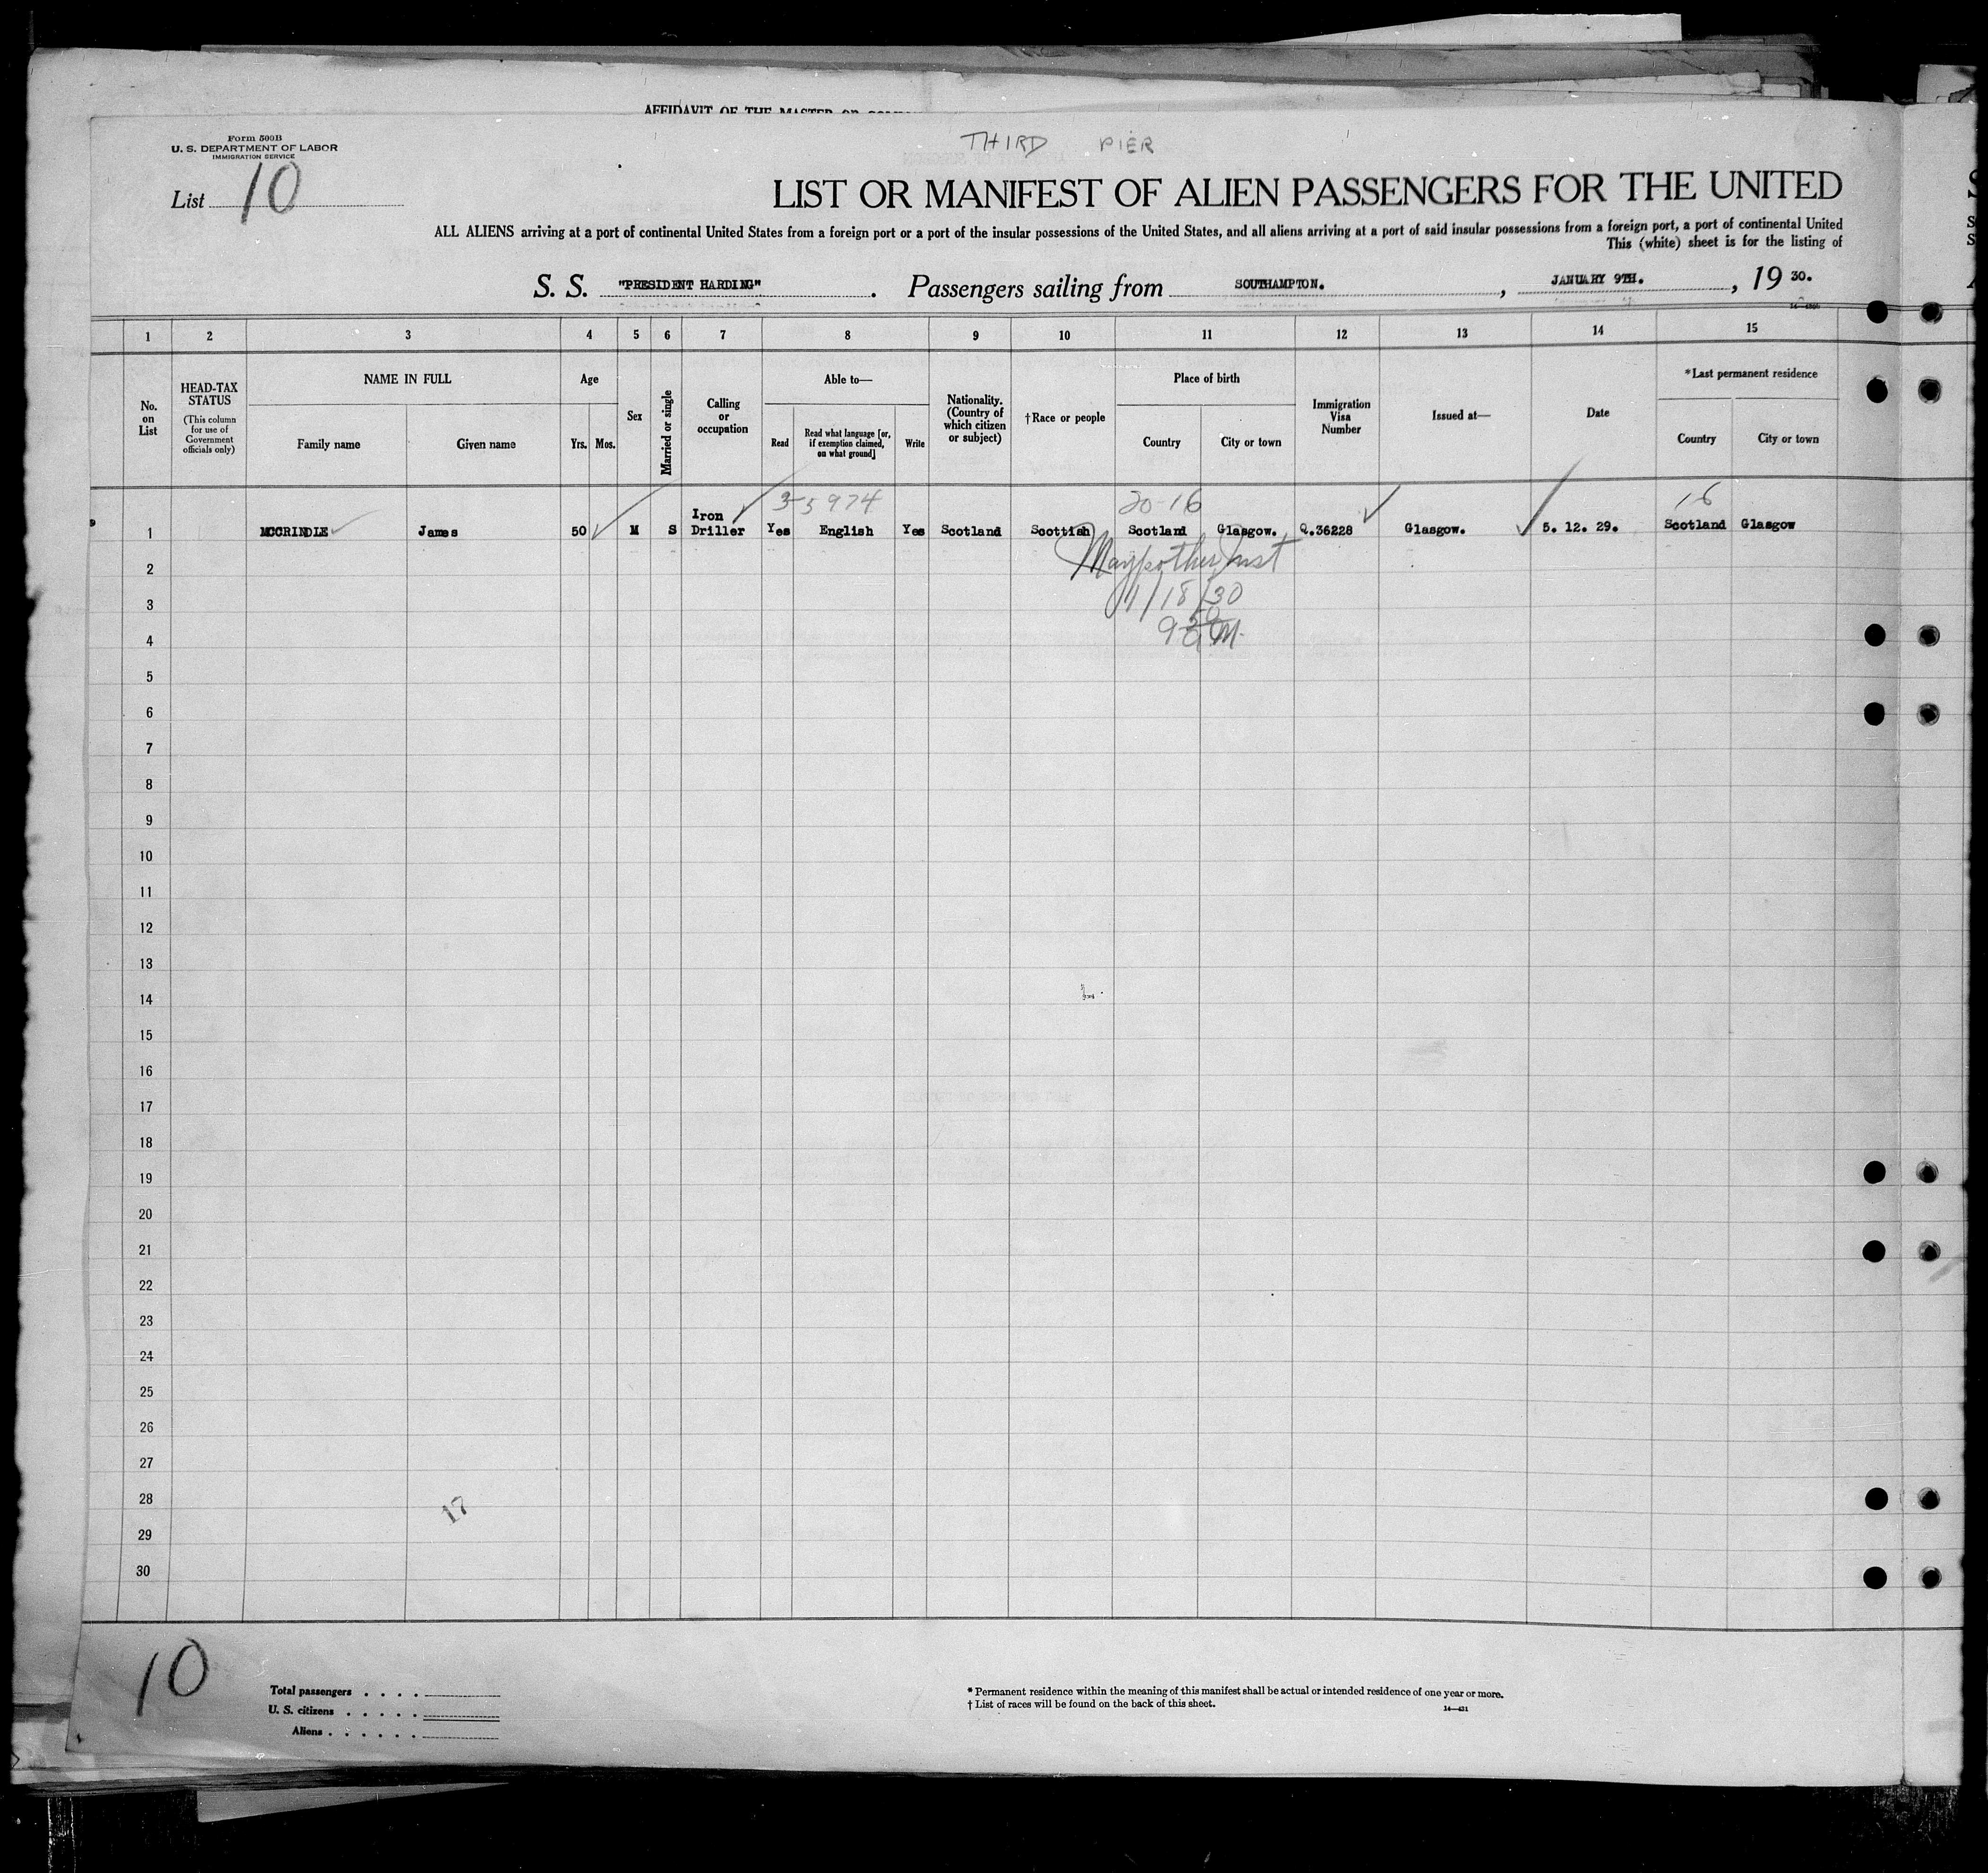 AFFIDAVIT OF THE MASTER OR
Form 500B
U. S. DEPARTMENT OF LABOR
IMMIGRATION SERVICE
THIRD PIER
List 10
LIST OR MANIFEST OF ALIEN PASSENGERS FOR THE UNITED
ALL ALIENS arriving at a port of continental United States from a foreign port or a port of the insular possessions of the United States, and all aliens arriving at a port of said insular possessions from a foreign port, a port of continental United
This (white) sheet is for the listing of
S. S. "PRESIDENT HARDING". Passengers sailing from SOUTHAMPTON., JANUARY 9TH., 19 30.
1 2 3 4 5 6 7 8 9 10 11 12 13 14 15
No. on List
HEAD-TAX STATUS
(This column for use of Government officials only)
NAME IN FULL
Family name Given name
Age
Yrs. Mos.
Sex
Married or single
Calling or occupation
Able to—
Read
Read what language [or, if exemption claimed, on what ground]
Write
Nationality. (Country of which citizen or subject)
†Race or people
Place of birth
Country City or town
Immigration Visa Number
Issued at—
Date
*Last permanent residence
Country City or town
20-16 16
1 MCCRINDLE James 50 M S Iron Driller Yes English Yes Scotland Scottish Scotland Glasgow. Q.36228 Glasgow. 5. 12. 29. Scotland Glasgow
2
1/18/30
3
4
5
6
7
8
9
10
11
12
13
14
15
16
17
18
19
20
21
22
23
24
25
26
27
28
17
29
30
10
Total passengers . . . .
U. S. citizens . . . . .
Aliens . . . . . .
* Permanent residence within the meaning of this manifest shall be actual or intended residence of one year or more.
† List of races will be found on the back of this sheet.
14—431